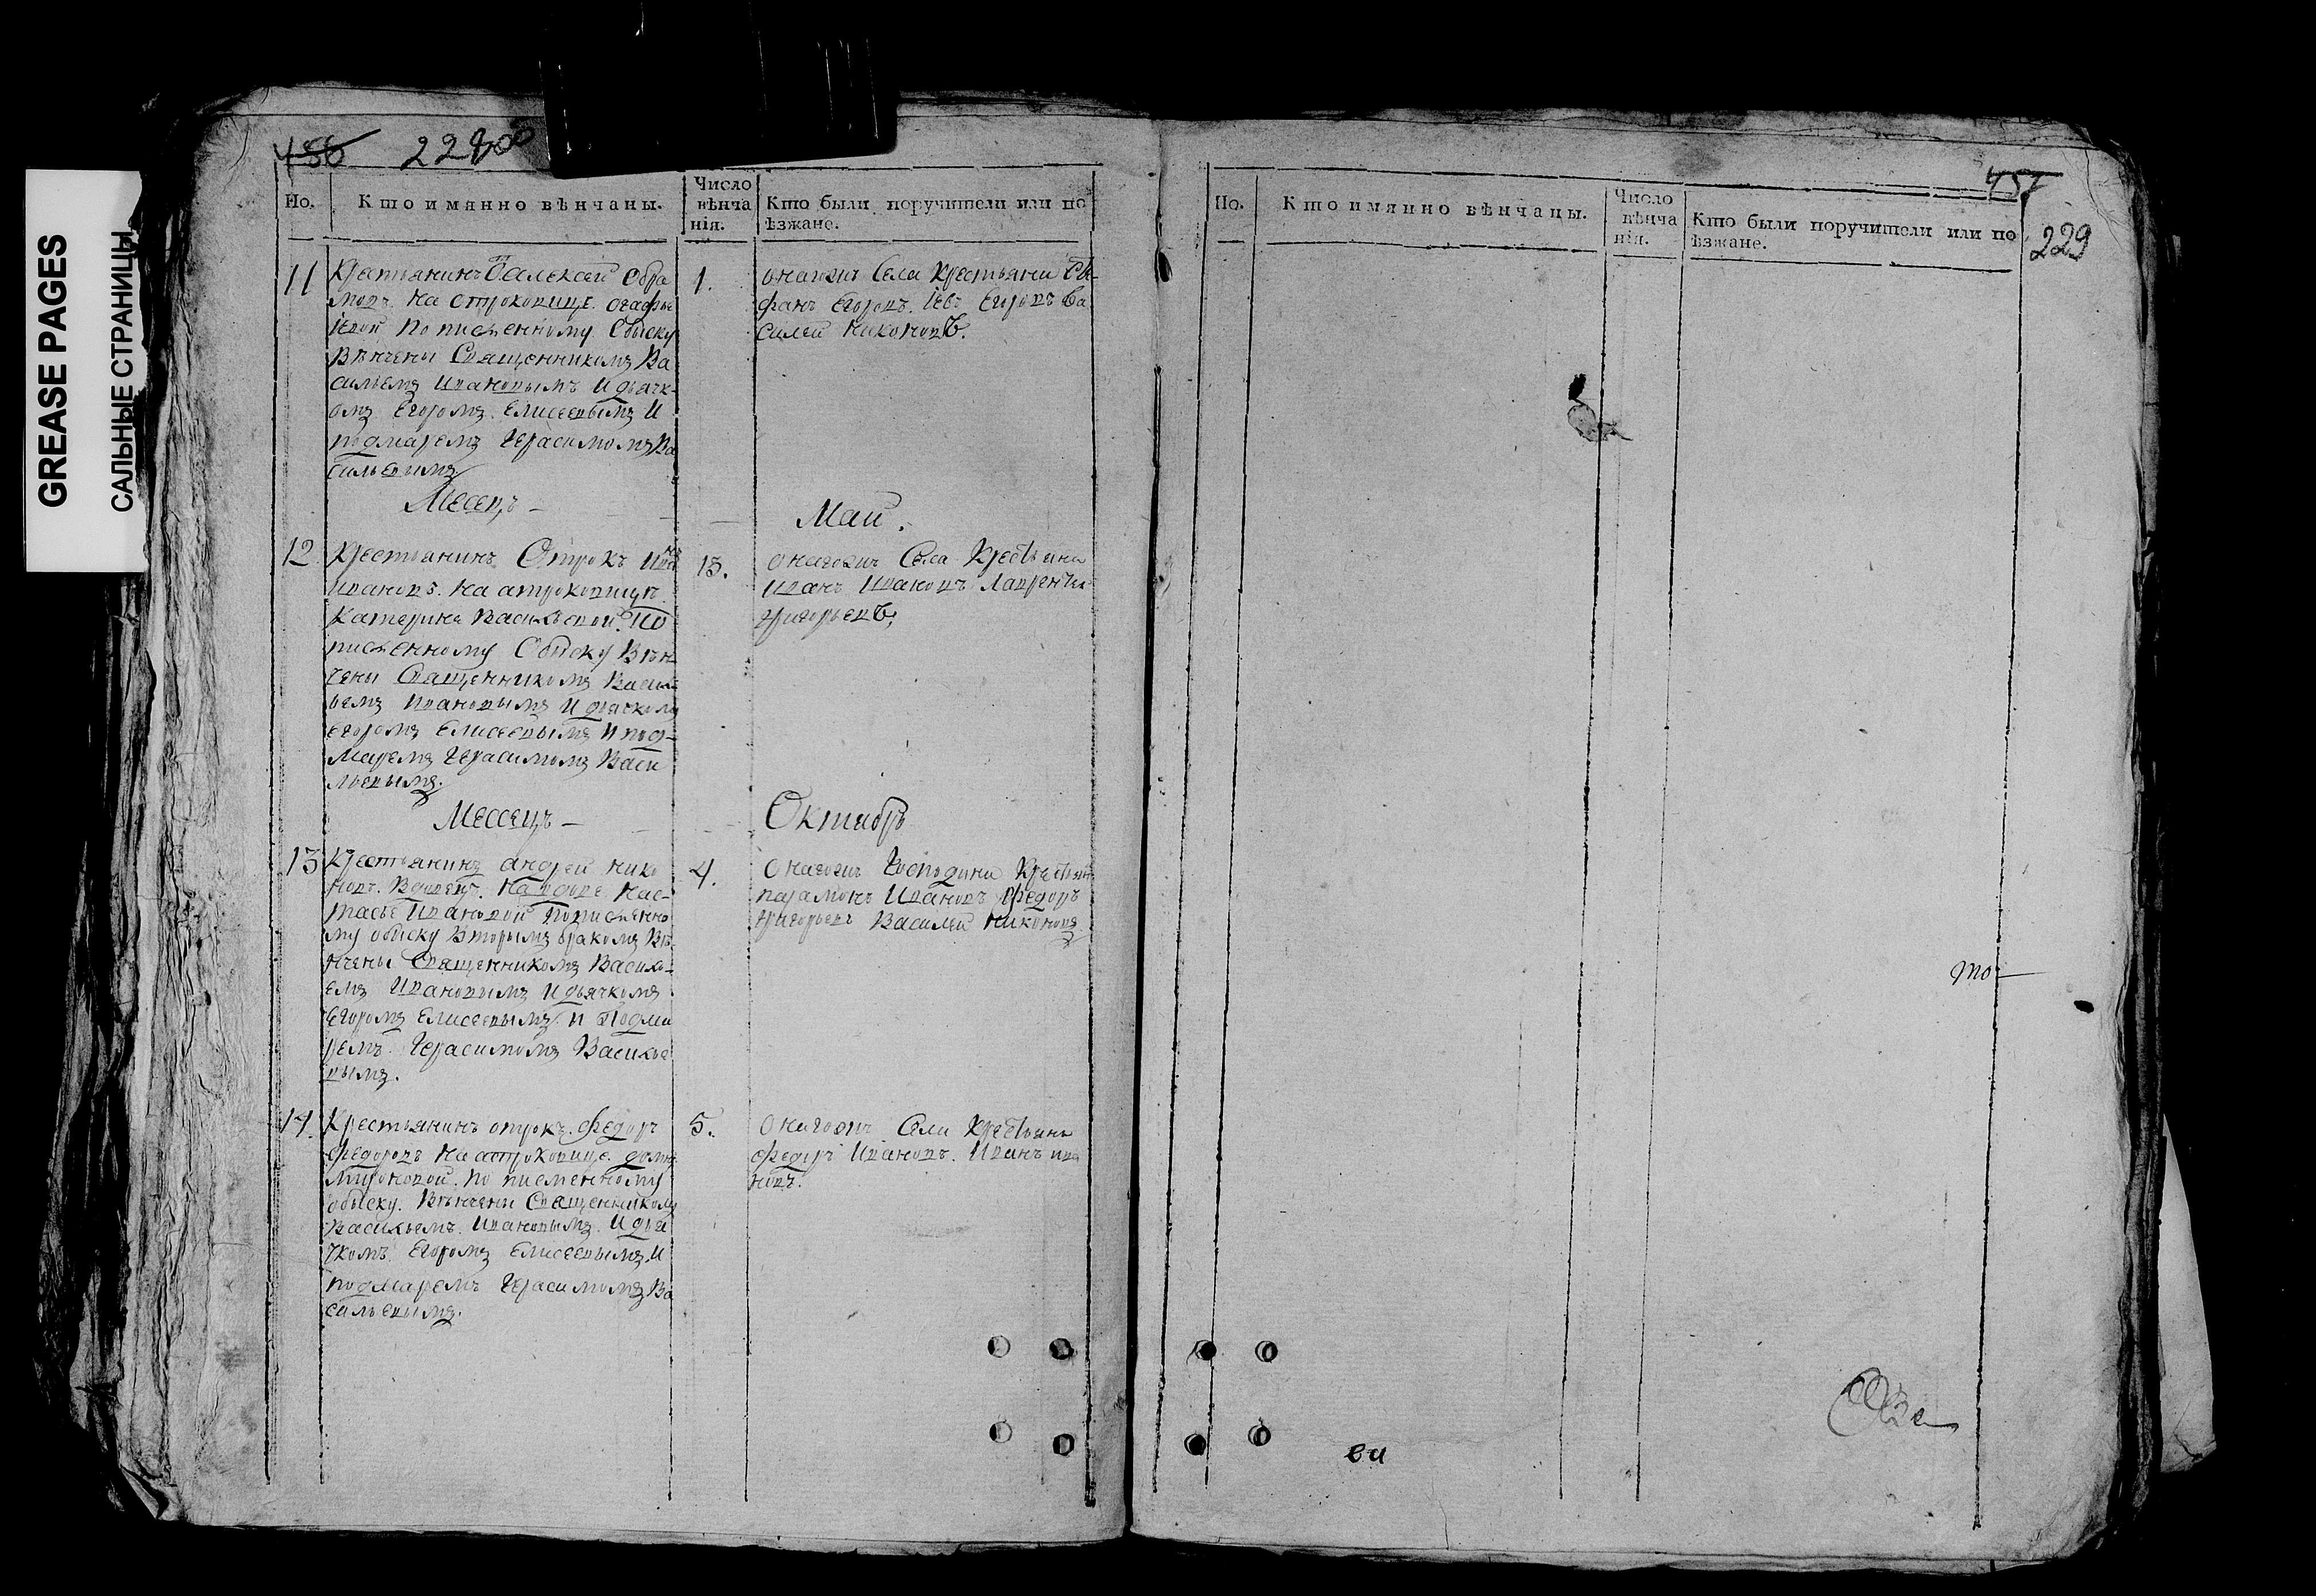 GREASE PAGES
САЛЬНЫЕ СТРАНИЦЫ
456 228об
Но. Кто имянно вѣнчаны. Число вѣнчанія. Кто были поручители или поѣзжане.
11 Крестьянинъ Алексей Абра
мовъ. на строковице. агафье
Iевой по писменному Обыску
Венчены Священникомъ Ва
сильемъ Ивановымъ И дьячк-
омъ Егоромъ. Елисеевымъ И
подмаремъ Герасимомъ Ва
сильевымъ
1.
Онагожъ Села Крестьяни
фанъ Егоровъ. Iевъ Егоровъ Ва
силеи никоновъ.
Месецъ - Маи.
12 Крестьянинъ Отрокъ Иванъ
Ивановъ. на атроковицѣ
Катерине Васильевой. По
писменному Обыску Вѣн
чены Священникомъ Василь
ьемъ Ивановымъ И дьячкомъ
Егоромъ Елисеевымъ И под-
Маремъ Герасимомъ Васи
льевымъ.
13.
Онагожъ Села Крестьяне
Иванъ Ивановъ Лаврентеи
григорьевъ,
Мессецъ - Октябрь
13 Крестьянинъ андреи нико
новъ. Вдовецъ. На вдове. Нас-
тасье Ивановой По писменно
му обыску Вторымъ бракомъ Вѣ
нчены Священникомъ Василь-
емъ Ивановымъ И дьячкомъ
Егоромъ Елисеевымъ. И Подма
ремъ. Герасимомъ Василье
вымъ.
4.
Онагожъ Господина Крестьяне
парамонъ Ивановъ Федоръ
григорьевъ Василеи Никоновъ
14. Крестьянинъ отрокъ. Федоръ
Федоровъ На атроковице. домне
Мироновой. по писменному
обыску. Вѣнчены Священникомъ
Васильемъ. Ивановымъ. И дья
чкомъ Егоромъ Елисеевымъ. И
подмаремъ Герасимомъ Ва
сильевымъ.
5.
Онагожъ Села Крестьяне
Федоръ Ивановъ. Иванъ ива
новъ.
457
229
Но. Кто имянно вѣнчаны. Число вѣнчанія. Кто были поручители или поѣзжане.
то
ви